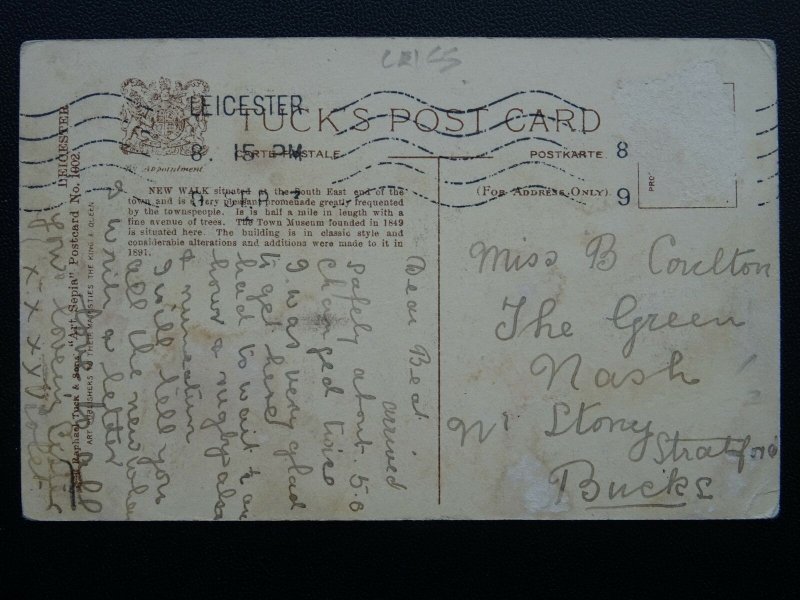 CRICS
LEICESTER
TUCK'S POST CARD
8. 15 PM
CARTE POSTALE
POSTKARTE
8
By Appointment
(FOR ADDRESS ONLY)
9
PRO
NEW WALK situated at the South East end of the
town and is a very pleasant promenade greatly frequented
by the townspeople. Is is half a mile in length with a
fine avenue of trees. The Town Museum founded in 1849
is situated here. The building is in classic style and
considerable alterations and additions were made to it in
1891.
LEICESTER
Raphael Tuck & Sons' "Art Sepia" Postcard No. 1602.
ART PUBLISHERS TO THEIR MAJESTIES THE KING & QUEEN
Dear Beat
arrived
safely about 5.0
changed twice
I was very glad
to get here
had to wait ¼ an
hour a rugby also
nuneation
I will tell you
all the news when
I write a letter
Your loving
x x x x Violet
Miss B Coulton
The Green
Nash
Nr Stony
Stratford
Bucks